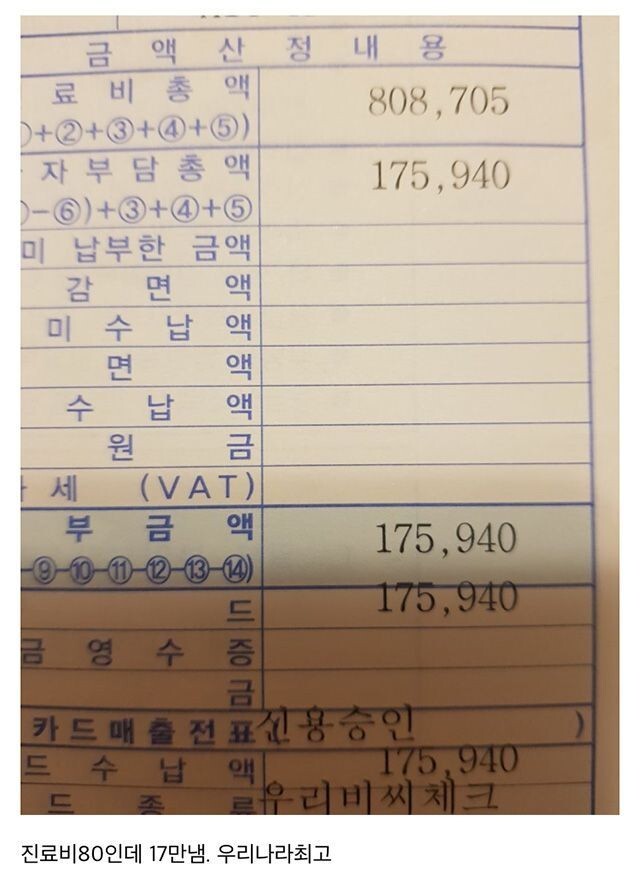 금 액 산 정 내 용
료 비 총 액 808,705
+②+③+④+⑤)
자 부 담 총 액 175,940
-⑥)+③+④+⑤
미 납부한 금액
감 면 액
미 수 납 액
면 액
수 납 액
원 금
세 (VAT)
부 금 액 175,940
-⑨-⑩-⑪-⑫-⑬-⑭)
드 175,940
금 영 수 증
금
카드매출전표( 신용승인 )
드 수 납 액 175,940
드 종 류 우리비씨체크
진료비80인데 17만냄. 우리나라최고